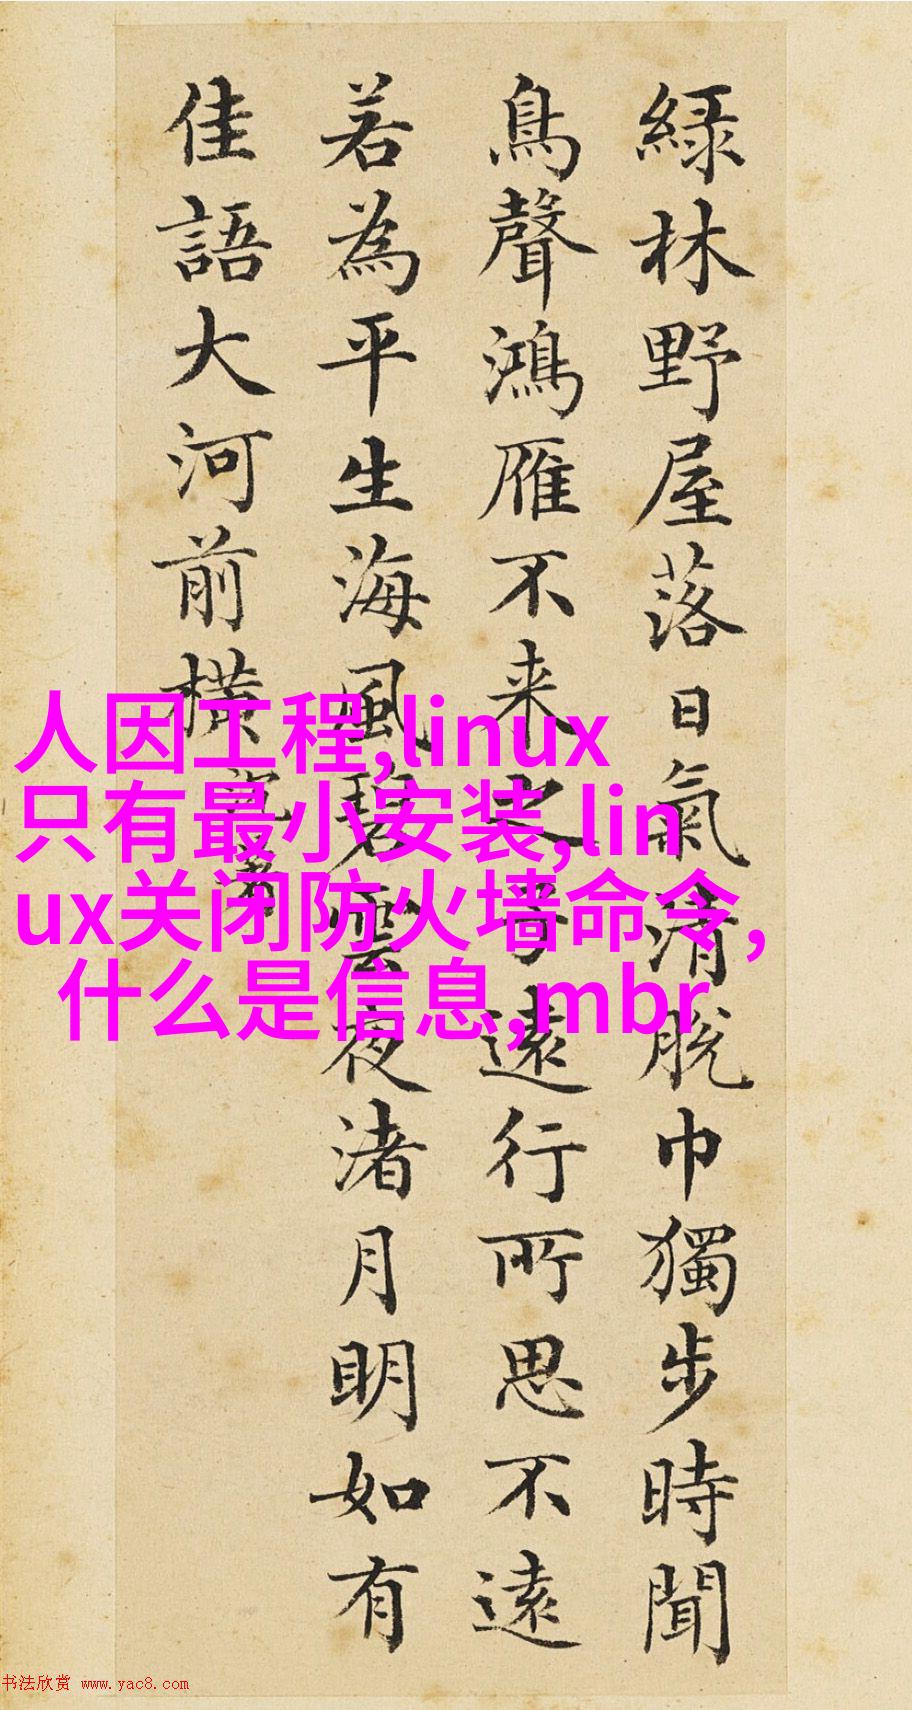 綠林野屋落日氣清脫巾獨步時聞
鳥聲鴻雁不来之子遠行所思不遠
若為平生海風碧雲夜渚月明如有
佳語大河前橫
人因工程,linux
只有最小安装,lin
ux关闭防火墙命令,
什么是信息,mbr
书法欣赏 www.yac8.com